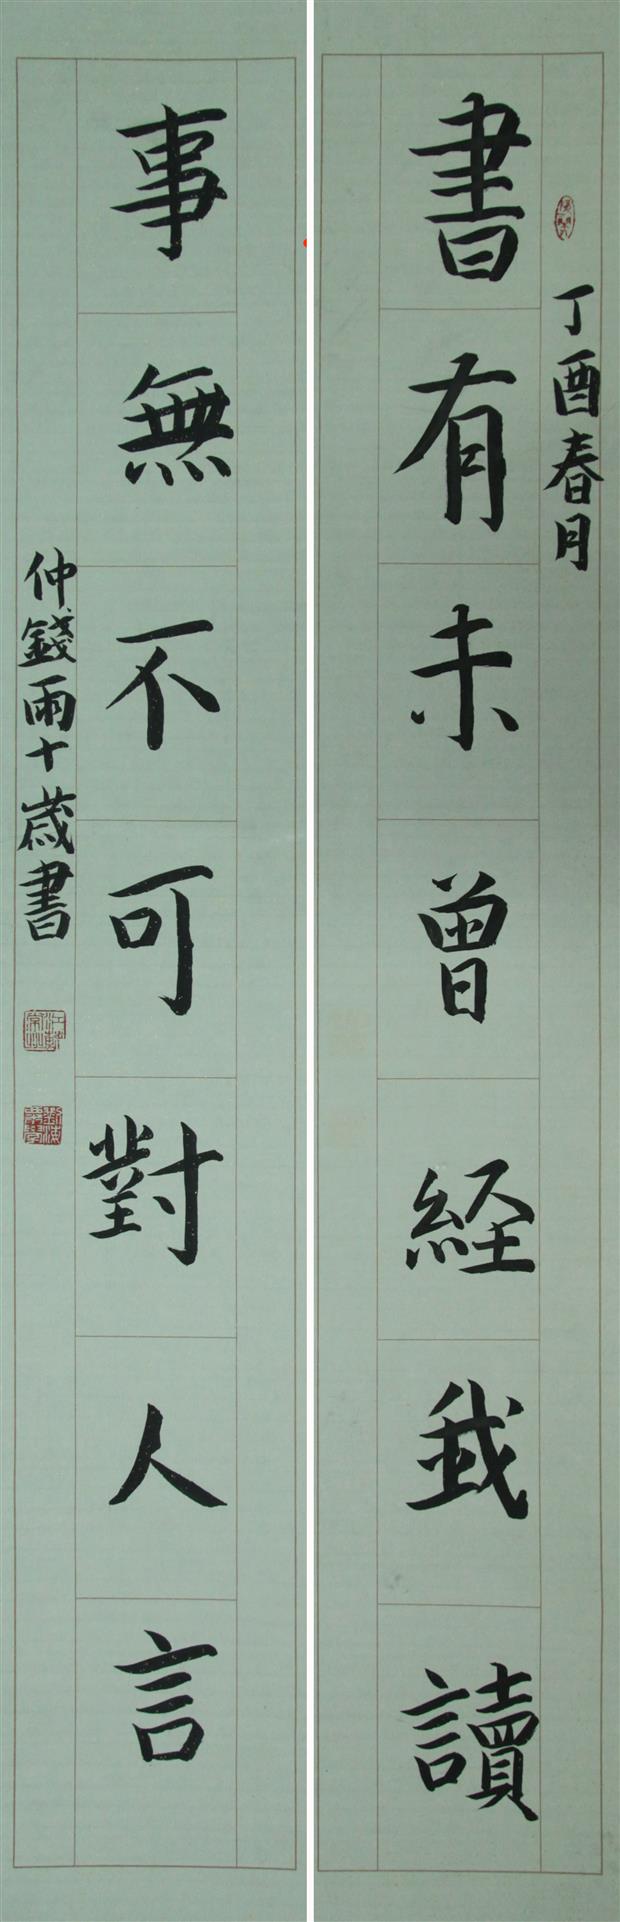 丁酉春月
書有未曾経我讀
事無不可對人言
仲錢雨十歲書